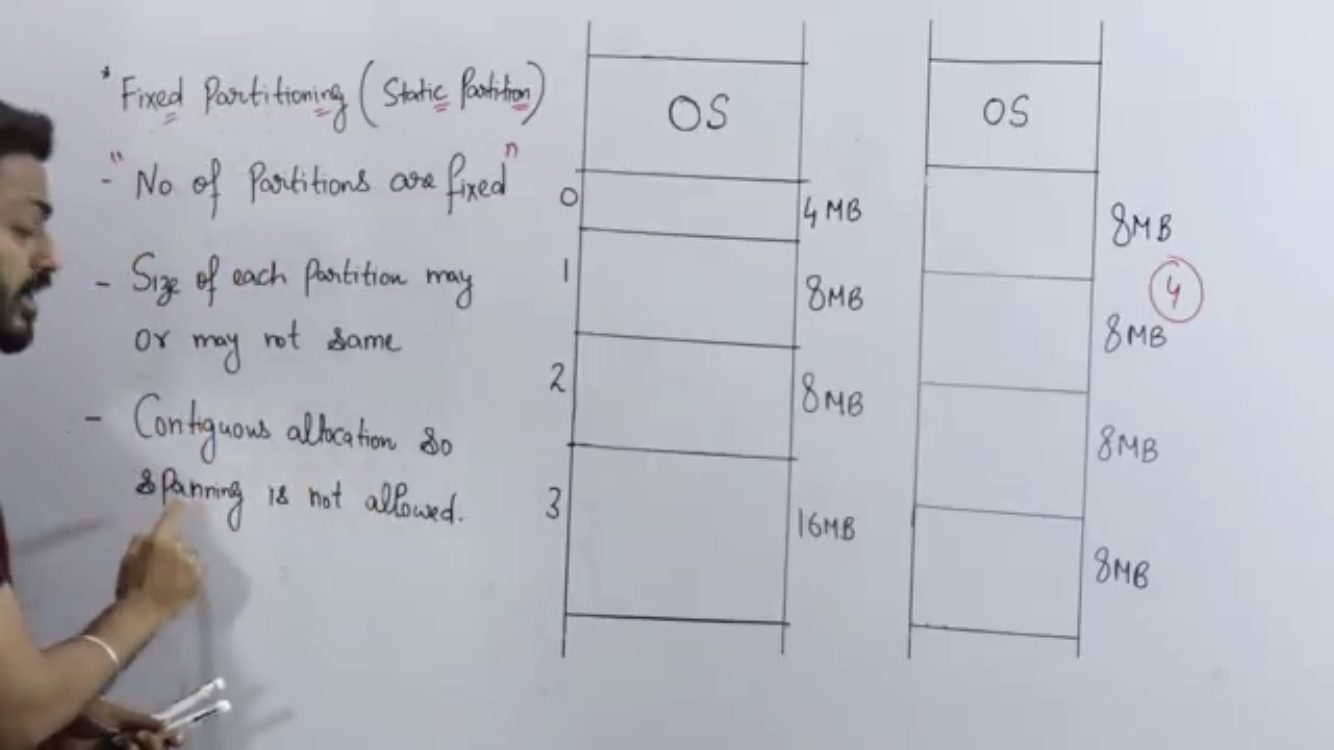 * Fixed Partitioning (Static Partition)
- "No of Partitions are fixed"
- Size of each Partition may
or may not same
- Contiguous allocation so
spanning is not allowed.
OS
0
4 MB
1
8MB
2
8MB
3
16MB
OS
8MB
4
8MB
8MB
8MB